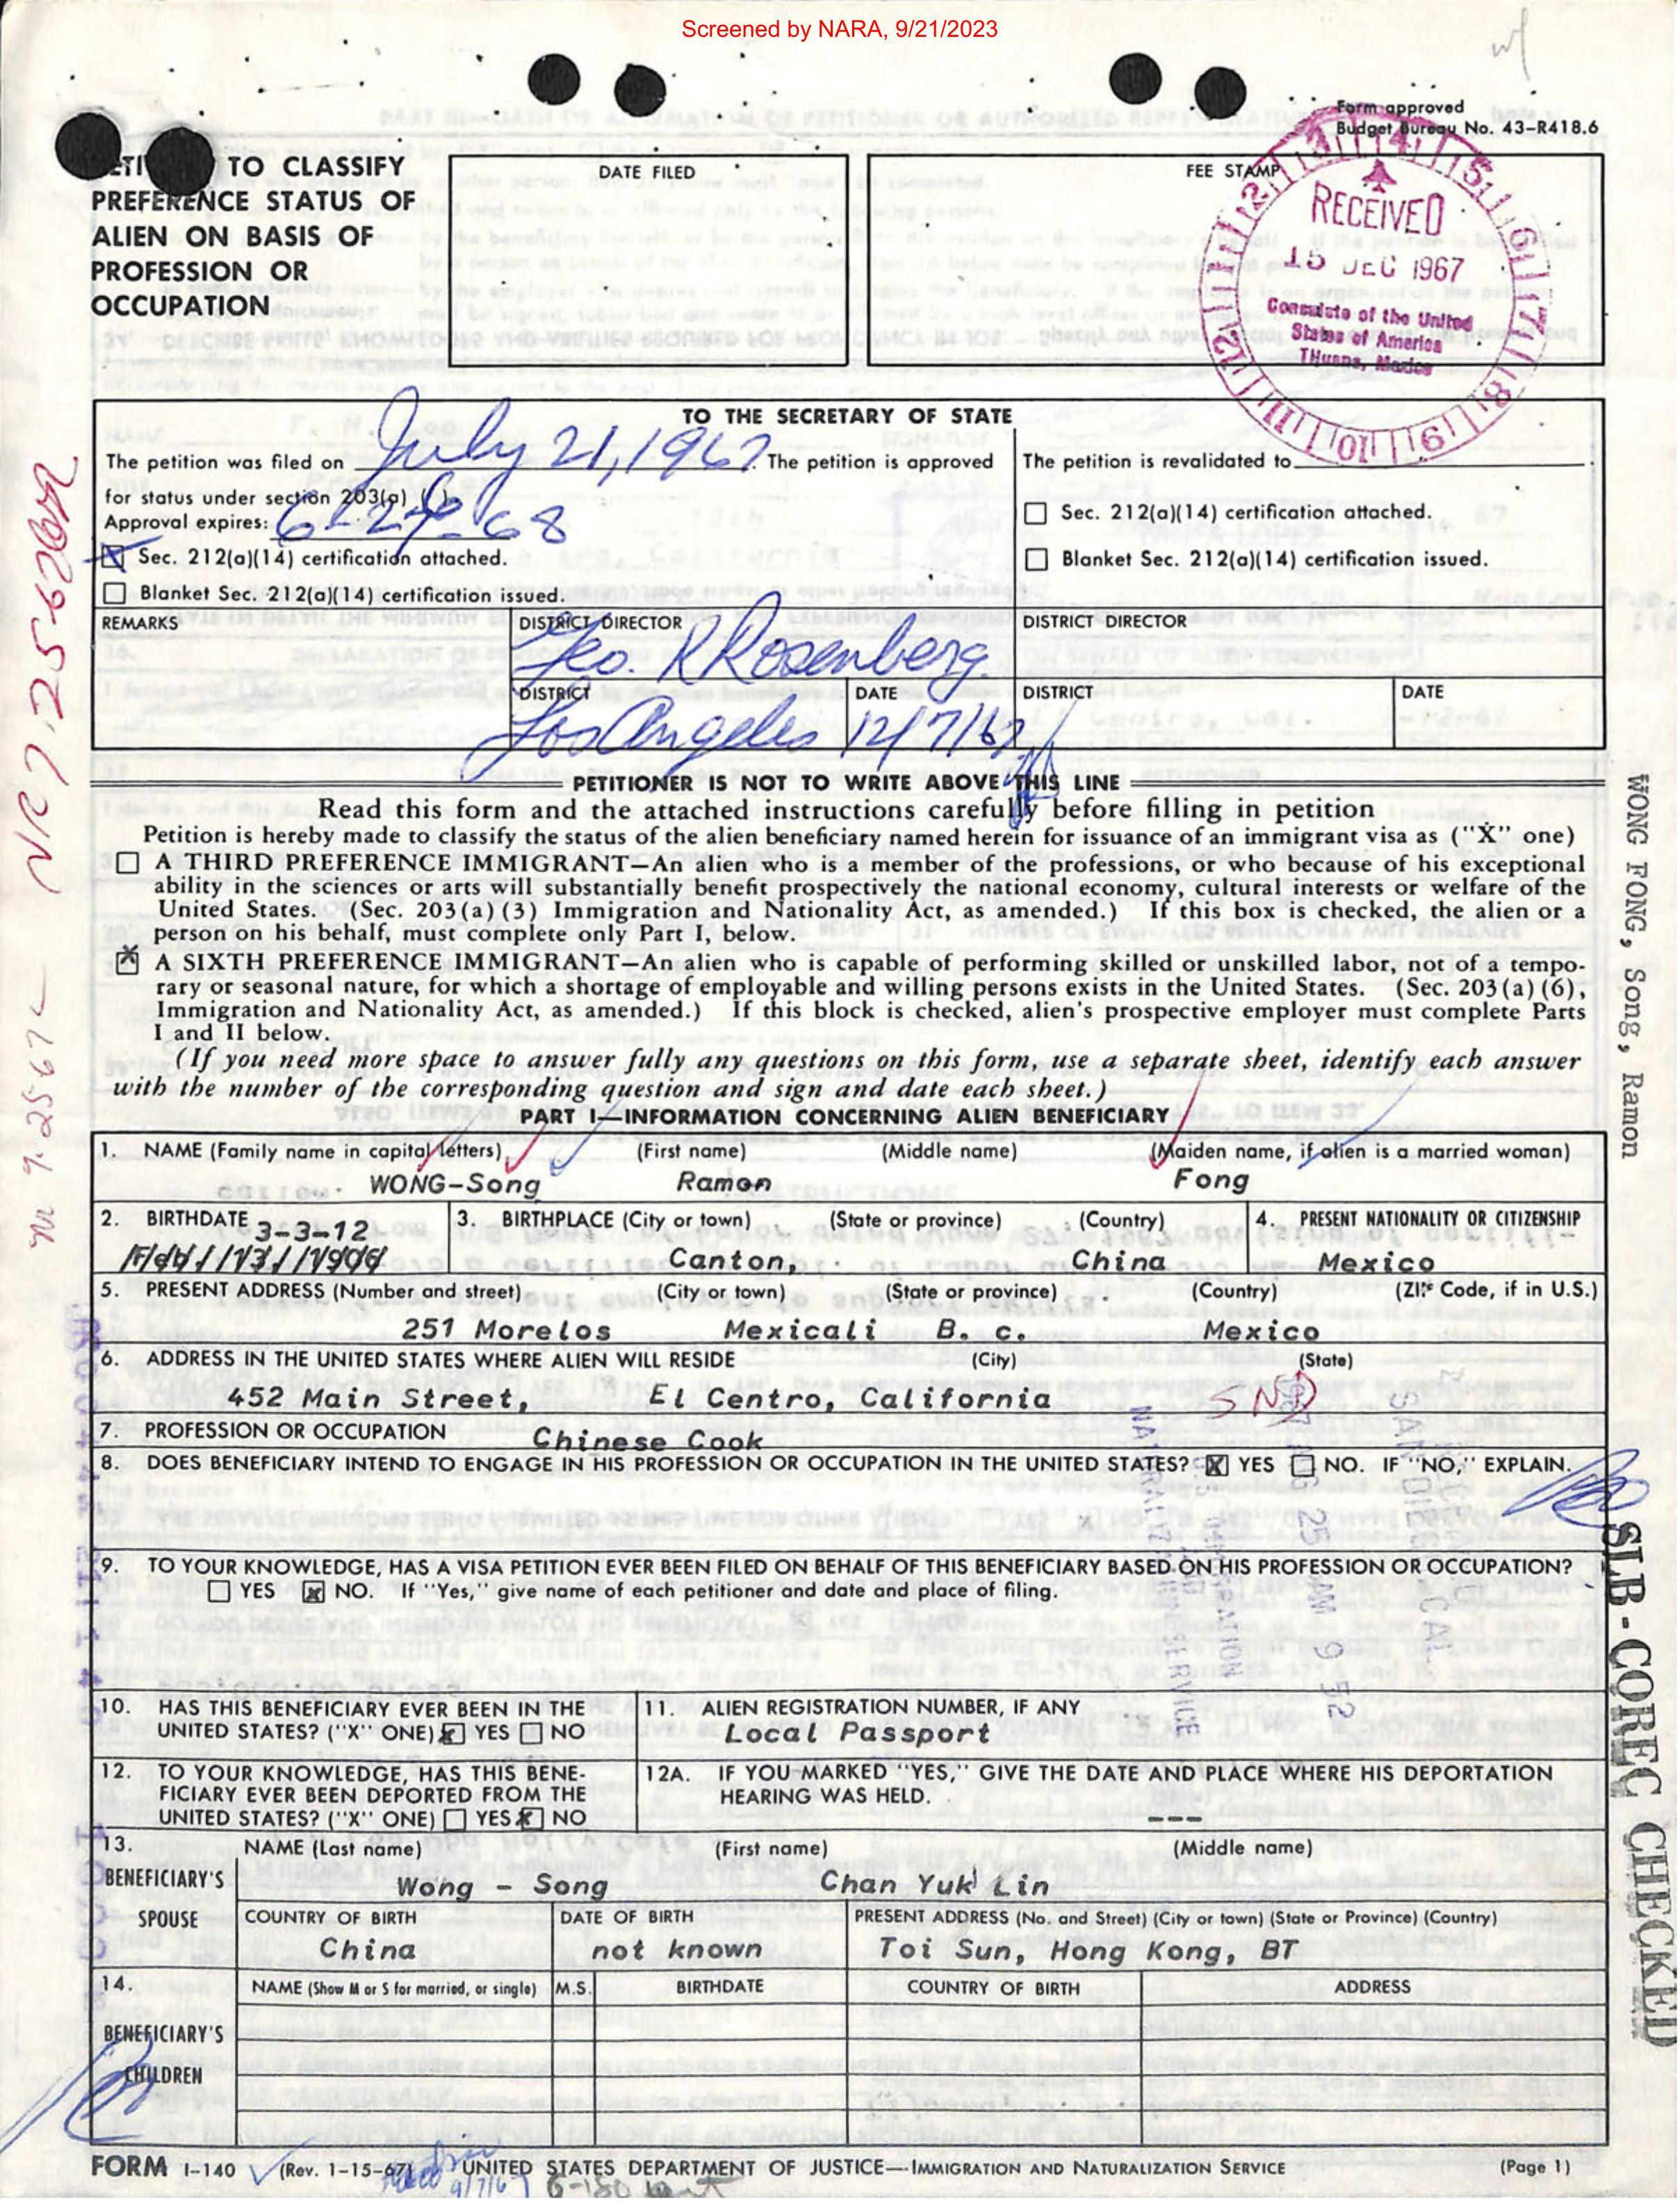 Screened by NARA, 9/21/2023
Form approved
Budget Bureau No. 43-R418.6
TO CLASSIFY
PREFERENCE STATUS OF
ALIEN ON BASIS OF
PROFESSION OR
OCCUPATION
DATE FILED
FEE STAMP
RECEIVED
15 DEC 1967
Consulate of the United
States of America
Tijuana, Mexico
TO THE SECRETARY OF STATE
The petition was filed on July 21, 1967. The petition is approved
for status under section 203(a) ( ).
Approval expires: 6-24-68
Sec. 212(a)(14) certification attached.
Blanket Sec. 212(a)(14) certification issued.
The petition is revalidated to
Sec. 212(a)(14) certification attached.
Blanket Sec. 212(a)(14) certification issued.
REMARKS
DISTRICT DIRECTOR
Geo. K Rosenberg
DISTRICT
Los Angeles
DATE
12/7/67
DISTRICT DIRECTOR
DISTRICT
DATE
PETITIONER IS NOT TO WRITE ABOVE THIS LINE
Read this form and the attached instructions carefully before filling in petition
Petition is hereby made to classify the status of the alien beneficiary named herein for issuance of an immigrant visa as ("X" one)
A THIRD PREFERENCE IMMIGRANT—An alien who is a member of the professions, or who because of his exceptional
ability in the sciences or arts will substantially benefit prospectively the national economy, cultural interests or welfare of the
United States. (Sec. 203(a)(3) Immigration and Nationality Act, as amended.) If this box is checked, the alien or a
person on his behalf, must complete only Part I, below.
X A SIXTH PREFERENCE IMMIGRANT—An alien who is capable of performing skilled or unskilled labor, not of a tempo-
rary or seasonal nature, for which a shortage of employable and willing persons exists in the United States. (Sec. 203(a)(6),
Immigration and Nationality Act, as amended.) If this block is checked, alien's prospective employer must complete Parts
I and II below.
(If you need more space to answer fully any questions on this form, use a separate sheet, identify each answer
with the number of the corresponding question and sign and date each sheet.)
PART I—INFORMATION CONCERNING ALIEN BENEFICIARY
1. NAME (Family name in capital letters) (First name) (Middle name) (Maiden name, if alien is a married woman)
WONG-Song Ramon Fong
2. BIRTHDATE 3-3-12
3. BIRTHPLACE (City or town) (State or province) (Country)
Canton, China
4. PRESENT NATIONALITY OR CITIZENSHIP
Mexico
5. PRESENT ADDRESS (Number and street) (City or town) (State or province) (Country) (ZIP Code, if in U.S.)
251 Morelos Mexicali B. c. Mexico
6. ADDRESS IN THE UNITED STATES WHERE ALIEN WILL RESIDE (City) (State)
452 Main Street, El Centro, California
SND
7. PROFESSION OR OCCUPATION Chinese Cook
8. DOES BENEFICIARY INTEND TO ENGAGE IN HIS PROFESSION OR OCCUPATION IN THE UNITED STATES? X YES NO. IF "NO," EXPLAIN.
9. TO YOUR KNOWLEDGE, HAS A VISA PETITION EVER BEEN FILED ON BEHALF OF THIS BENEFICIARY BASED ON HIS PROFESSION OR OCCUPATION?
YES X NO. If "Yes," give name of each petitioner and date and place of filing.
10. HAS THIS BENEFICIARY EVER BEEN IN THE
UNITED STATES? ("X" ONE) X YES NO
11. ALIEN REGISTRATION NUMBER, IF ANY
Local Passport
12. TO YOUR KNOWLEDGE, HAS THIS BENE-
FICIARY EVER BEEN DEPORTED FROM THE
UNITED STATES? ("X" ONE) YES X NO
12A. IF YOU MARKED "YES," GIVE THE DATE AND PLACE WHERE HIS DEPORTATION
HEARING WAS HELD.
---
13. NAME (Last name) (First name) (Middle name)
BENEFICIARY'S
SPOUSE
Wong - Song Chan Yuk Lin
COUNTRY OF BIRTH
China
DATE OF BIRTH
not known
PRESENT ADDRESS (No. and Street) (City or town) (State or Province) (Country)
Toi Sun, Hong Kong, BT
14. NAME (Show M or S for married, or single) M.S. BIRTHDATE COUNTRY OF BIRTH ADDRESS
BENEFICIARY'S
CHILDREN
FORM I-140 (Rev. 1-15-67) UNITED STATES DEPARTMENT OF JUSTICE—IMMIGRATION AND NATURALIZATION SERVICE (Page 1)
WONG FONG, Song, Ramon
SLB-COREC CHECKED
AM 9 52